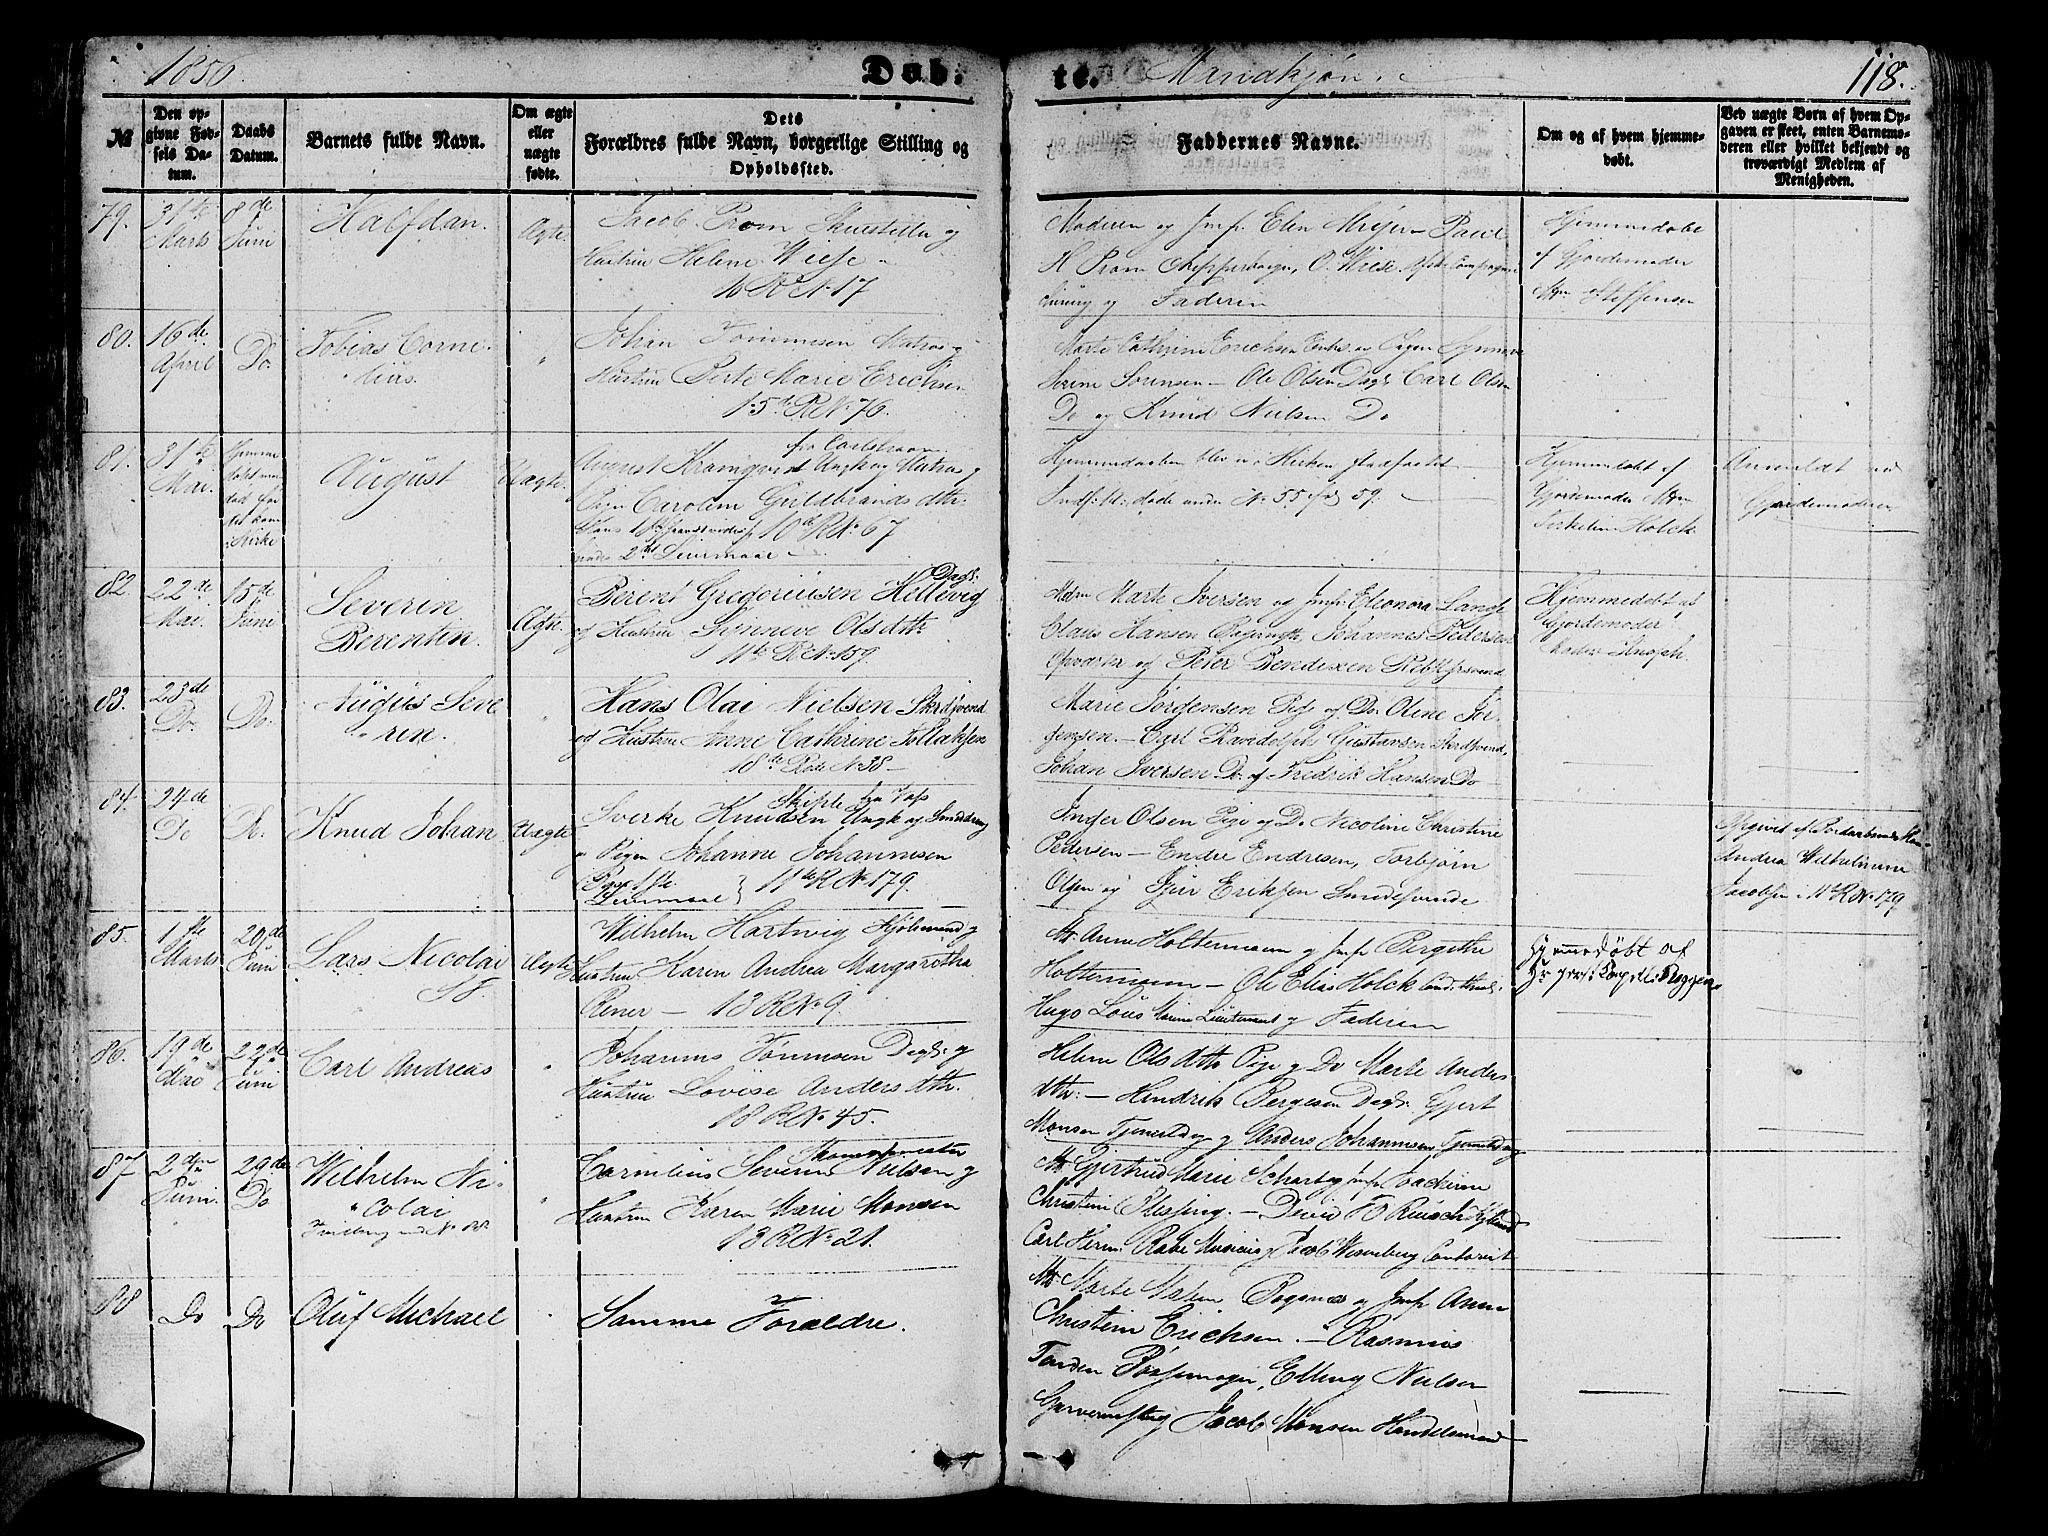 1856.
Døb-
te.
Mandkjøn.
118.
№
Den op-
givne Fød-
sels Da-
tum.
Daabs
Datum.
Barnets fulde Navn.
Om ægte
eller
uægte
fødte.
Dets
Forældres fulde Navn, borgerlige Stilling og
Opholdssted.
Faddernes Navne.
Om og af hvem hjemme-
døbt.
Ved uægte Børn af hvem Op-
gaven er skeet, enten Barnemo-
deren eller hvilket bekjendt og
troværdigt Medlem af
Menigheden.
79.
31te
Marts
8de
Juni
Halfdan.
Ægte.
Jacob Prom
og
Hustrue Helene Wiese
16 R № 17
Moderen og Jmf. Elen Meyer Paul
H Prom O. Wiese
og Faderen
Hjemmedøbt
af Gjordemoder
Mdm Steffensen
80.
16de
April
Do.
Tobias Corne-
lius.
Johan Tønnesen Matros og
Hustrue Berte Marie Erichsen
15de R № 76.
Marte Cathrine Erichsen Enke og Pigen Synneve
Serine Sørensen - Ole Olsen Dagk. Carl Olsen
Do og Knud Nielsen Do
81.
31te
Mai.
August
Uægte.
fra Carlshavn
August Kramqvist Ungk og Matros og
Pigen Carolina Guldbrands dtr.
Hans 1ste 10de R № 67
hendes 2det Leiermaal
Hjemmedaaben blev ei i Kirken stadfæstet
Indf: M: døde under № 55 fol 59.
Hjemmedøbt af
Gjordemoder Mdm
Holck
Anmeldt ved
Gjordemoderen
82.
22de
Mai.
15de
Juni
Severin
Berentin.
Ægte.
Berent Gregoriusen Hellevig Dagk:
og Hustrue Synneve Olsdtr.
11te R № 159.
Mdm Marte Iversen og Jmfr. Eleonora Lange
Claus Hansen Johannes Pedersen
og Peter Bendixen
Hjemmedøbt af
Gjordemoder
83.
23de
Do.
Do.
August Seve-
rin.
Hans Olai Nielsen Skrdsvend
og Hustrue Anne Cathrine Tollaksen
18de Rode № 38 -
Marie Jørgensen Pige og Do. Oline Jør-
gensen. - Carl Randolph Gustavsen Skrdsvend,
Johan Iversen Do. og Fredrik Hansen Do
84.
24de
Do
Do.
Knud Johan
Uægte
Skiple fra Vos
Sverke Knudsen Ungk og Smeddreng
og Pigen Johanne Johannesen
Begges 1ste
Leiermaal } 11te R № 179.
Inger Olsen Pige og Do Nicoline Christine
Pedersen - Endre Endresen, Torbjørn
Olsen og Sjur Eriksen Smedesvende
Opgivet af
Andrea Wilhelmine
Jacobsen i 11te R № 179
85.
1ste
Marts
20de
Juni
Lars Nicolai
Ægte
Wilhelm Hartvig Kjøbmand og
Hustrue Karen Andrea Margaretha
Rener - 13 R № 9.
M. Anne Holtermann og Jmfr Bergithe
Holtermann - Ole Elias Holck
Hugo Løus Marine Lieutenant og Faderen
Hjemmedøbt af
Hr
86.
19de
Mai
22de
Juni
Carl Andreas
Johannes Tønnesen Dagk: og
Hustrue Lovise Anders dtr.
18 R № 45.
Helene Ols dtr Pige og Do Marte Anders
dtr: - Hendrik Børgesen Dagk: Gjert
Monsen Tjenestdrg og Anders Johannesen Tjenestdrg
87
2den
Juni.
29de
Do
Wilhelm Ni-
colai
Tvilling med № 88
Skomagermester
Cornelius Severin Nielsen og
Hustrue Karen Marie Monsen
13 R № 21.
M. Gjertrud Marie Scharby Jmfr Joachime
Christine Plesping. - David F Reusch
Carl Herm: Rabe Musicus og Jacob Wesenberg Contorist
88
Do
Do
Oluf Michael
Samme Forældre.
M. Marte Malene Rogenæs og Jmfr Anne
Christine Erichsen. - Rasmus
Tanden Possemager, Elling Nielsen
Garversvend og Jacob Monsen Handelsmand